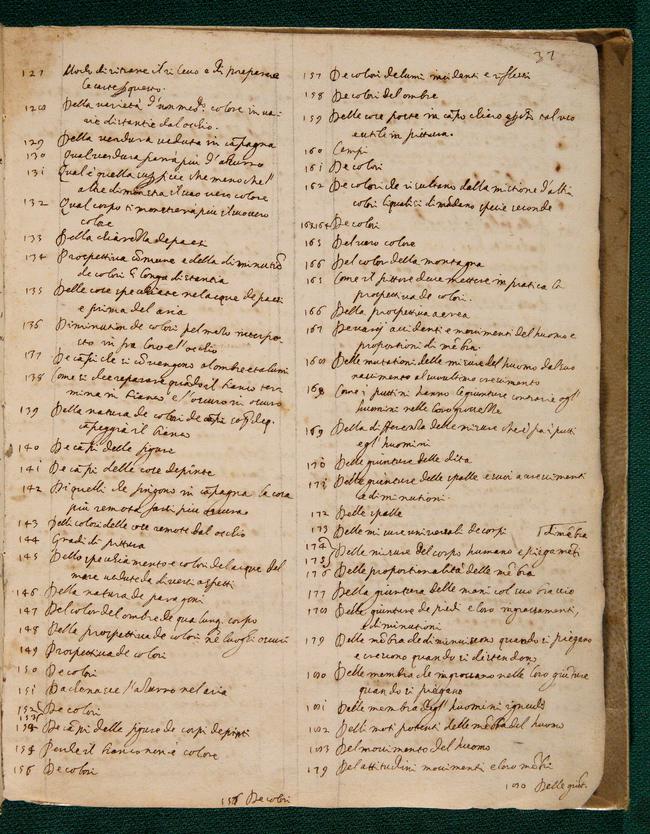 37
127 Modo di ritrarre il rilevo e di preparare
le carte p questo.
128 Della varietà d'un med.º colore in va-
rie distantie dal ochio.
129 Della verdura veduta in cãpagna
130 Qual verdura parra piu d'azurro
131 Qual è quella superficie che meno che l'
altre dimostra il suo vero colore
132 Qual corpo ti mosterera piu il suo vero
colore
133 Della chiarezza de paesi
134 Prospettiva cõmune e della diminutiõ
de colori ĩ longa distantia
135 Delle cose specchiate nel acque de paesi
e prima del aria
136 Diminution de colori pel mezo interpo-
sto in fra loro e l'ochio
137 De cãpi che si cõvengono al ombre et a lumi
138 Come si dee reparare quãdo il bianco ter-
mina in bianco e l'oscuro in oscuro
139 Della natura de colori de cãpi
cãpeggia il bianco
140 De cãpi delle figure
141 De cãpi delle cose depinte
142 Di quelli che pingono in cãpagna la cosa
piu remota farsi piu oscura
143 Delli colori delle cose remote dal ochio
144 Gradi di pittura
145 Dello specchiamento e colori del acque del
mare vedute da diversi aspetti
146 Della natura de paragoni
147 Del color del ombre de qualunq; corpo
148 Delle prospettiva de colori ne luoghi oscuri
149 Prospettiva de colori
150 De colori
151 Da donasce l'azurro nel aria
152 De colori
153
154 De cãpi delle figure de corpi depinti
155 Perche il bianco non è colore
156 De colori
156 De colori
157 De colori de lumi incidenti e reflessi
158 De colori del ombre
159 Delle cose poste in cãpo chiaro e p che tal uso
e utile in pittura.
160 Campi
161 De colori
162 De colori che risultano dalla mistione d'altri
colori li quali si dimãdano specie seconde
163 164 De colori
165 Del vero colore
166 Del color della montagna
165 Come il pittore deve mettere in pratica la
prospettiva de colori.
166 Della prospettiva aerea
167 De varij accidenti e movimenti del huomo e
proportioni di mẽbra.
168 Delle mutationi delle misure del huomo dal suo
nascimento al suo ultimo crescimento
168 Come i puttini hanno le giunture contrarie agl'
huomini nelle loro grossezze
169 Della differenza delle misure che è fra i putti
e gl'huomini
170 Delle giunture delle dita
171 Delle giunture delle spalle e suoi accrescimenti
e diminutioni.
172 Delle spalle
173 Delle misure universali de corpi
174 Delle misure del corpo humano e piegamẽti di mẽbra
175
176 Delle proportionalità delle mẽbra
177 Della giuntura delle mani col suo braccio
178 Delle giunture de piedi e loro ingrossamenti,
e diminutioni
179 Delle mẽbra che diminuiscono quando si piegano
e crescono quando si distendono
180 Delle membra che ingrossano nelle loro giũture
quando si piegano
181 Delle membra degl' huomini ignudi
182 Delli moti potenti delle mẽbra del huomo
183 Del movimento del huomo
179 Del attitudini movimenti e loro mẽbri
180 Delle giũt.